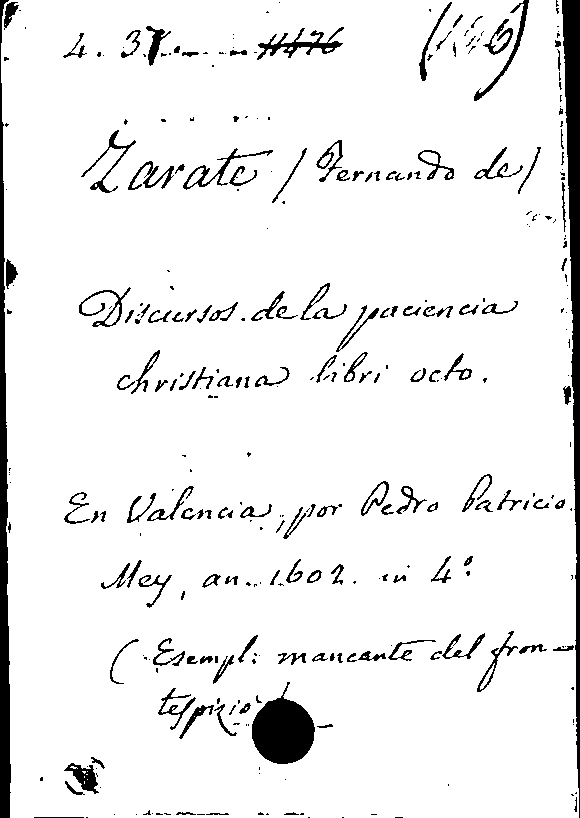 4. 37
Zarate / Fernando de /
Discursos de la paciencia
christiana libri octo.
En Valencia, por Pedro Patricio
Mey, an. 1602. in 4º.
( Esempl: mancante del fron-
tespizio